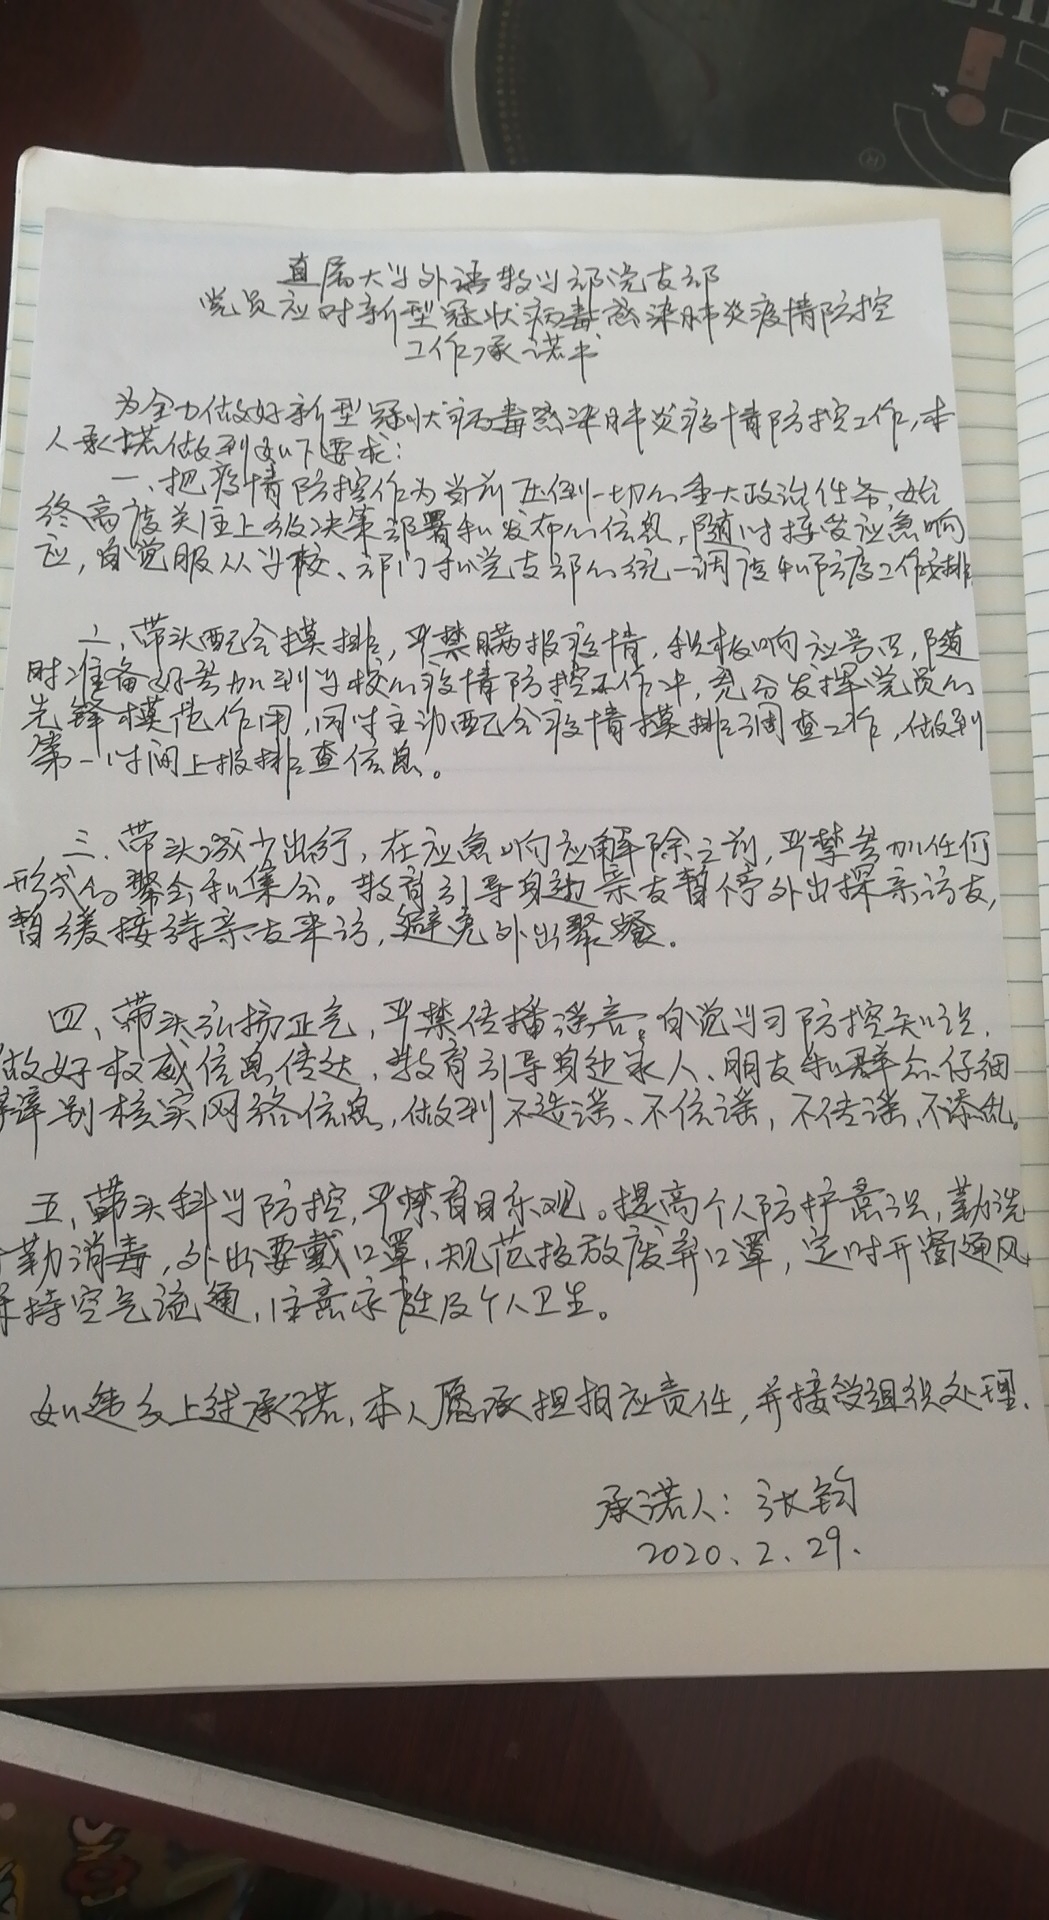 直属大学外语教学部党支部
党员应对新型冠状病毒感染肺炎疫情防控
工作承诺书
为全力做好新型冠状病毒感染肺炎疫情防控工作,本
人承诺做到如下要求:
一、把疫情防控作为当前压倒一切的重大政治任务,始
终高度关注上级决策部署和发布的信息,随时接受应急响
应,自觉服从学校、部门和党支部的统一调度和防疫工作安排
二、带头配合摸排,严禁瞒报疫情,积极响应号召,随
时准备好参加到学校的疫情防控工作中,充分发挥党员的
先锋模范作用,同时主动配合疫情摸排调查工作,做到
第一时间上报排查信息。
三、带头减少出行,在应急响应解除之前,严禁参加任何
形式的聚会和集会。教育引导身边亲友暂停外出探亲访友,
暂缓接待亲友来访,避免外出聚餐。
四、带头弘扬正气,严禁传播谣言。自觉学习防控知识,
做好权威信息传达,教育引导身边家人、朋友和群众仔细
辨别核实网络信息,做到不造谣、不信谣,不传谣、不添乱。
五、带头科学防控,严禁盲目乐观。提高个人防护意识,勤洗
勤消毒,外出要戴口罩,规范投放废弃口罩,定时开窗通风
保持空气流通,注意家庭及个人卫生。
如违反上述承诺,本人愿承担相应责任,并接受组织处理.
承诺人:张钧
2020.2.29.